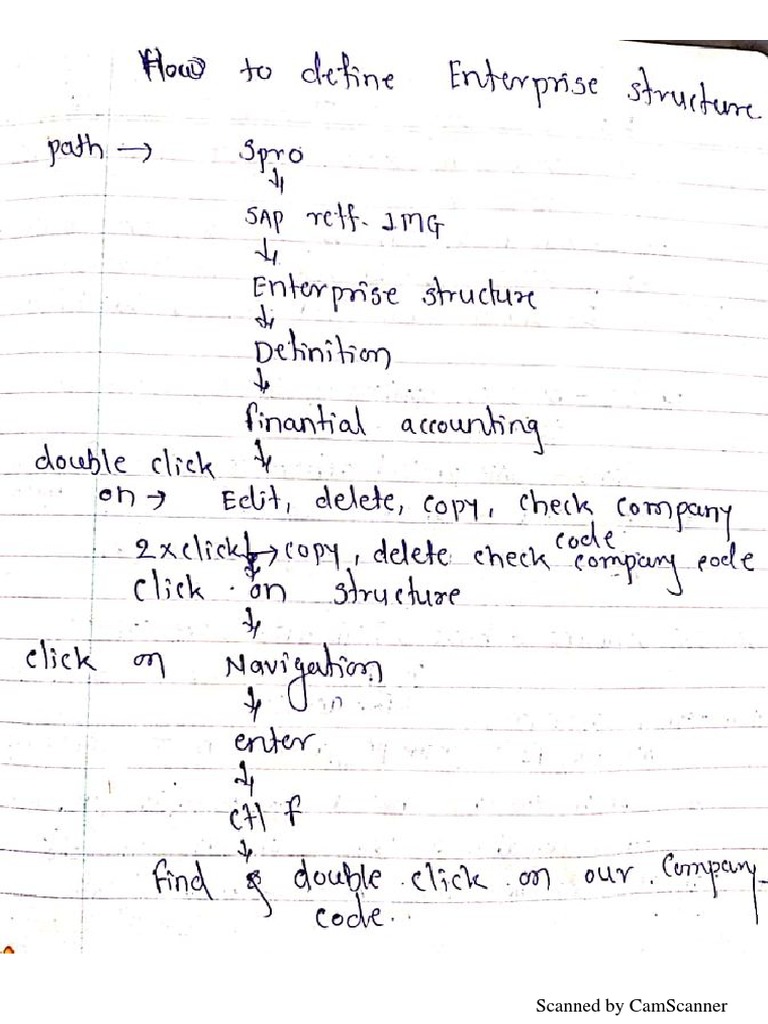 How to define Enterprise structure
path → Spro
↓
SAP reff. IMG
↓
Enterprise structure
↓
Definition
↓
finantial accounting
↓
double click
on → Edit, delete, copy, check company
code
2xclick → copy, delete check company code
click on structure
↓
click on Navigation
↓
enter.
↓
ctl f
↓
find & double click on our Company
code.
Scanned by CamScanner